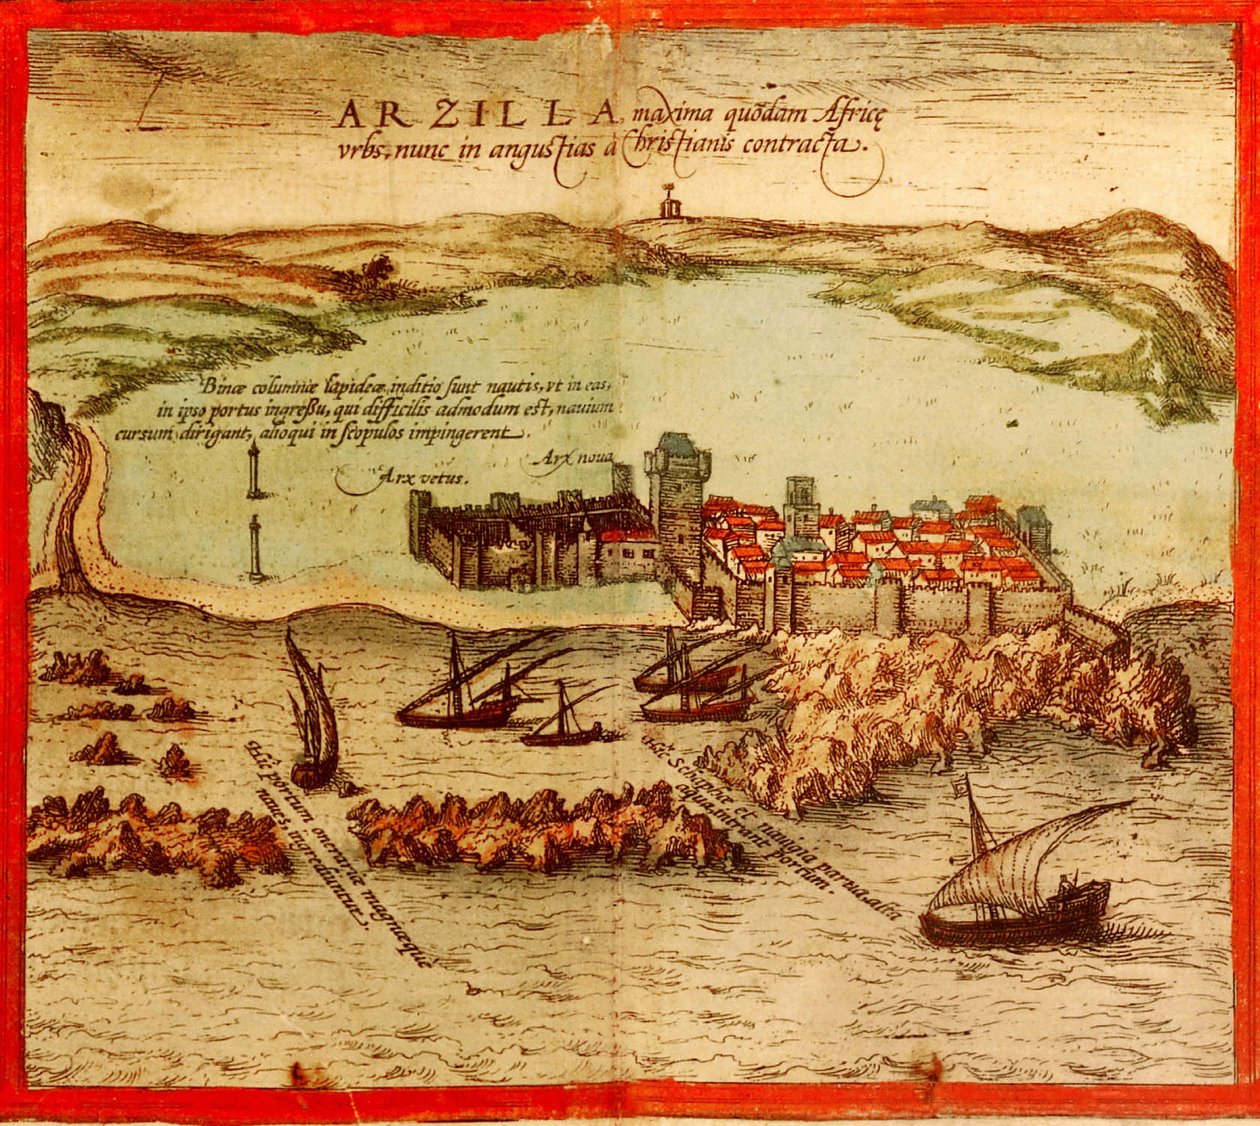 ARZILLA, maxima quōdam Africę
vrbs, nunc in angustias a Christianis contracta.
Binæ columnæ lapideæ, inditio sunt nautis, vt in eas,
in ipso portus ingreßu, qui difficilis admodum est, nauium
cursum dirigant, alioqui in scopulos impingerent.
Arx noua
Arx vetus.
Hic portum onerariæ magnæquè
naues ingrediuntur.
Hic Schaphæ et nauigia parua, alia
portum.